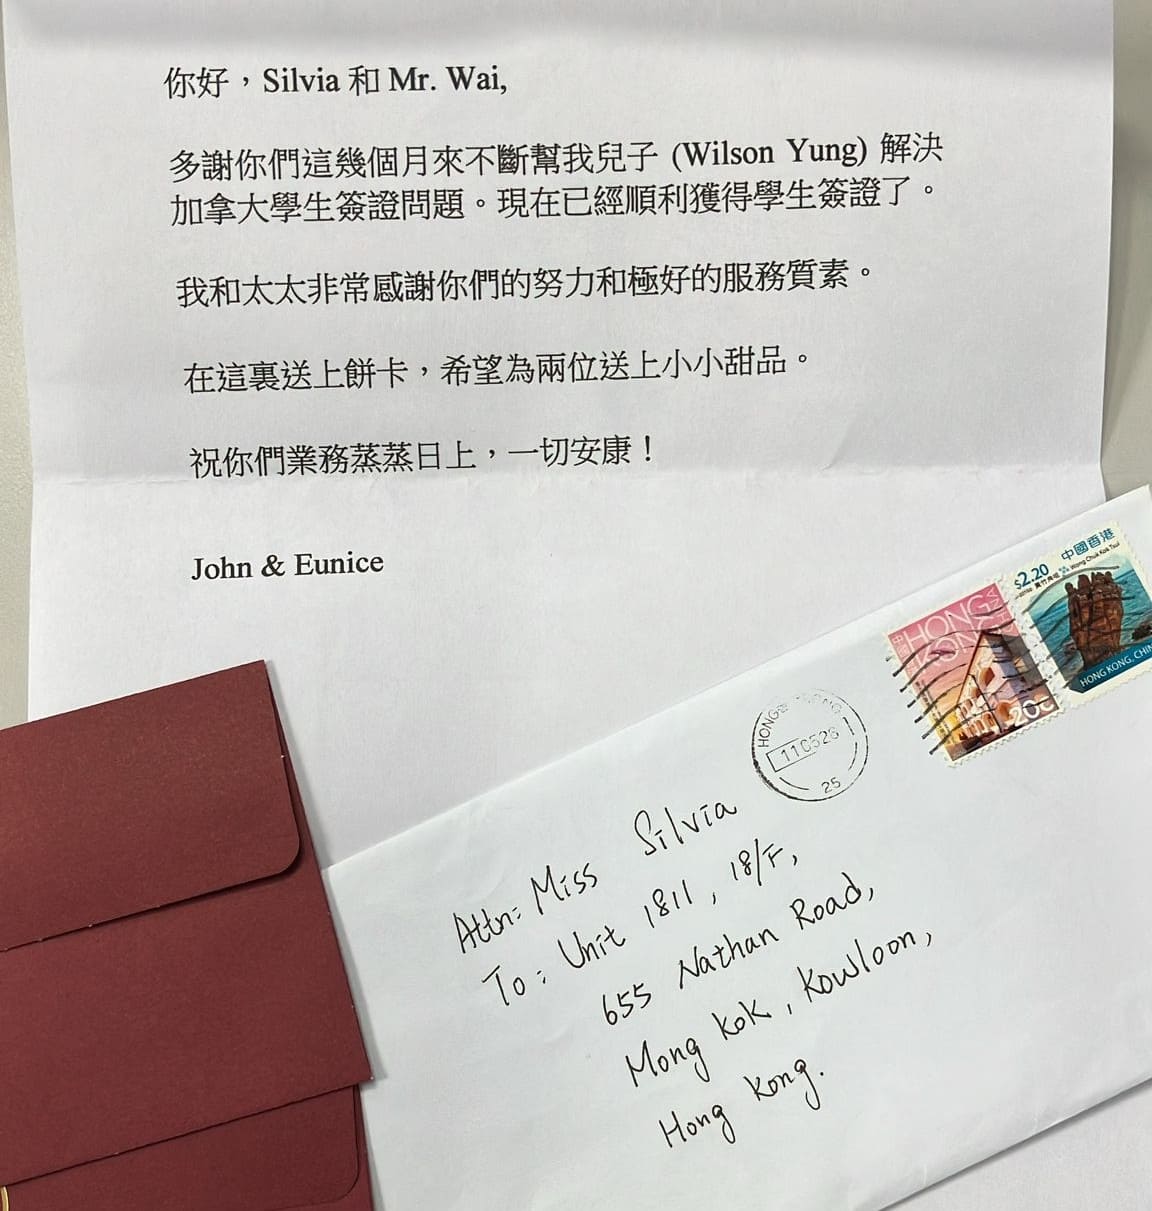 你好，Silvia 和 Mr. Wai,
多謝你們這幾個月來不斷幫我兒子 (Wilson Yung) 解決
加拿大學生簽證問題。現在已經順利獲得學生簽證了。
我和太太非常感謝你們的努力和極好的服務質素。
在這裏送上餅卡，希望為兩位送上小小甜品。
祝你們業務蒸蒸日上，一切安康！
John & Eunice
中國香港
$2.20
Wong Chuk Kok Tsui
HONG KONG, CHIN
HONG
KONG
20c
HONG KONG
25
Attn: Miss Silvia
To: Unit 1811, 18/F,
655 Nathan Road,
Mong Kok, Kowloon,
Hong Kong.